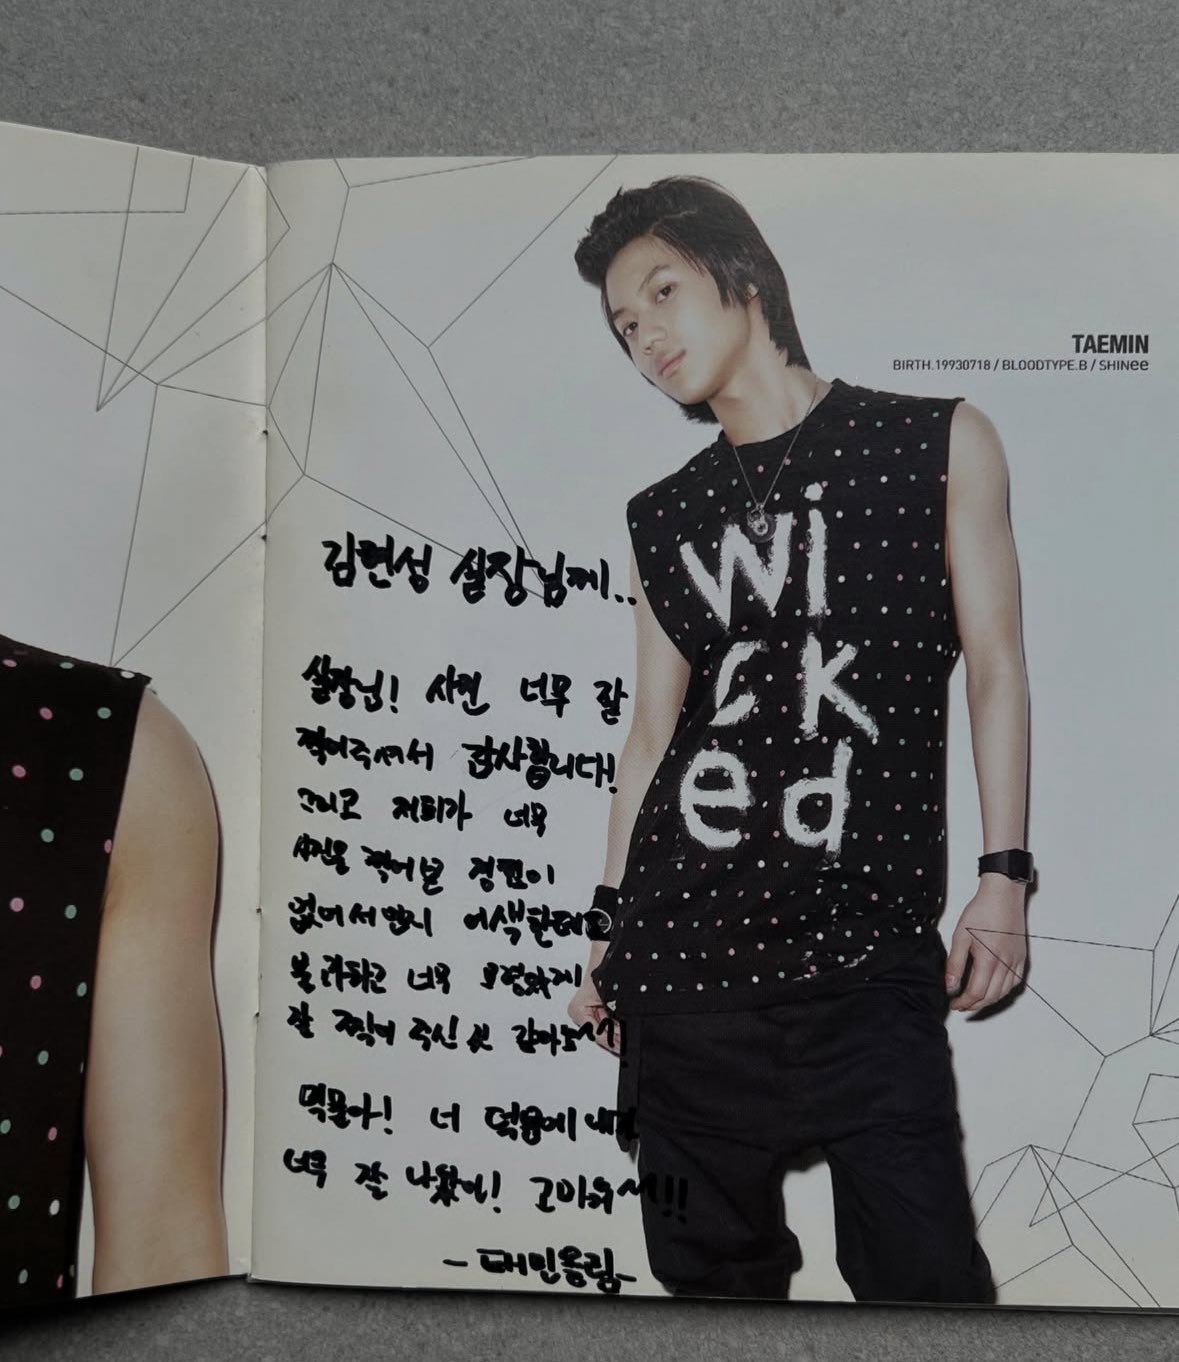 TAEMIN
BIRTH.19930718 / BLOODTYPE.B / SHINee
wi
ck
ed
김현성 실장님께..
실장님! 사진 너무 잘
찍어주셔서 감사합니다!
그리고 저희가 너무
사진을 찍어본 경험이
없어서인지 어색한데도
불구하고 너무
잘 찍어 주신 것 같아요~!
너 덕분에 내가
너무 잘 나왔어! 고마워~!!
- 태민올림-